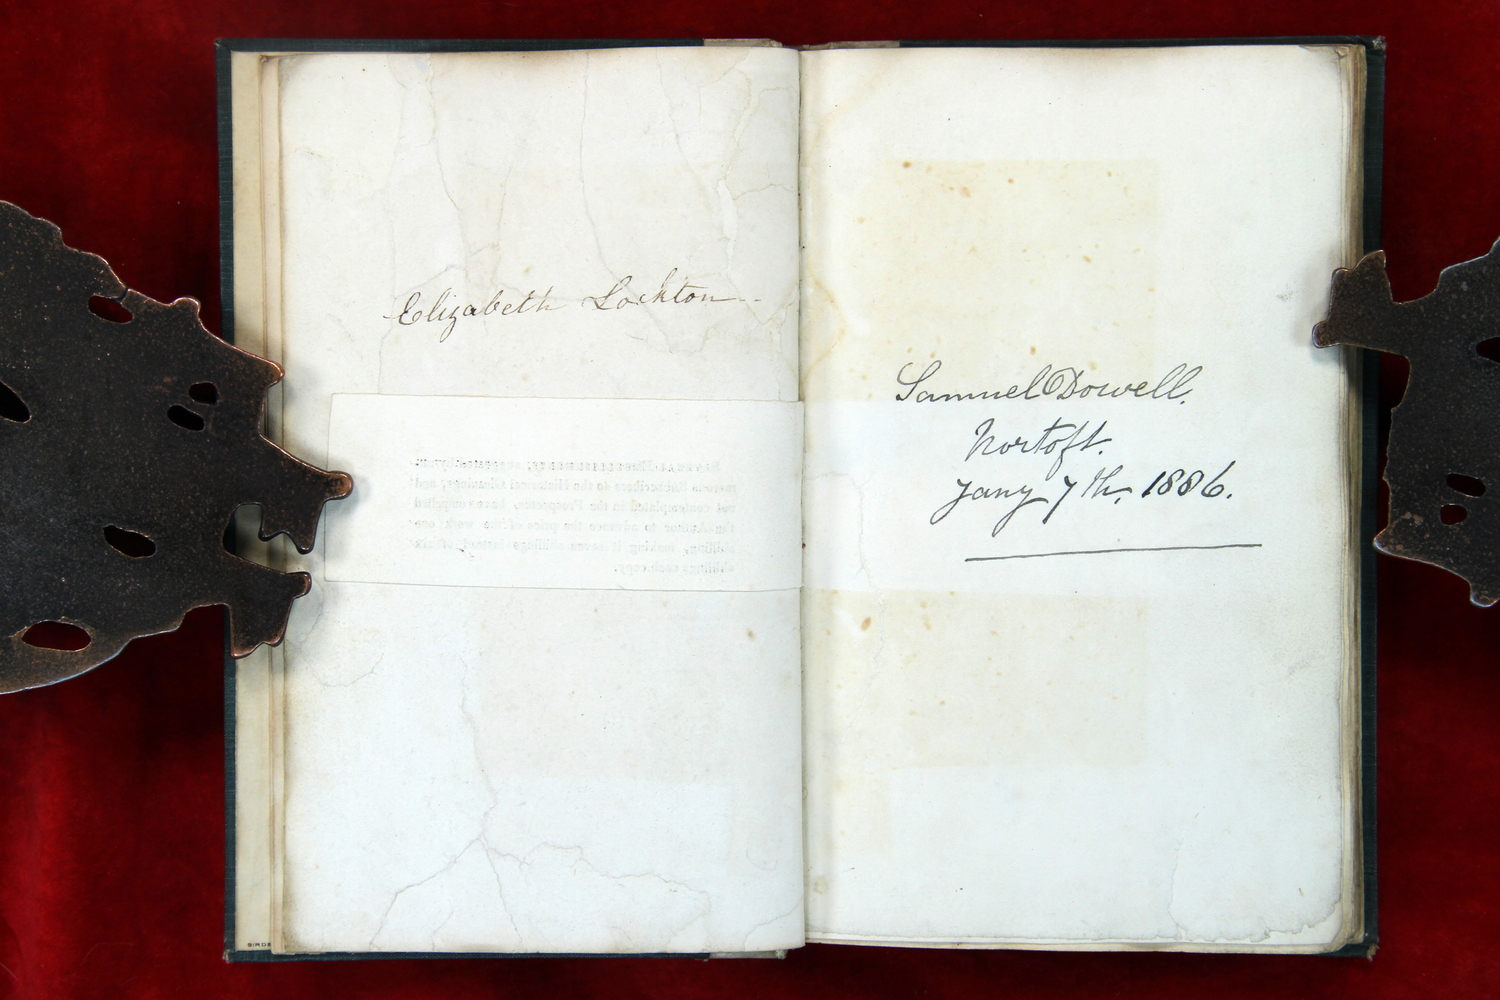 Elizabeth Lockton
EMBELLISHMENTS, suggested by
merous Subscribers to the Historical Gleanings, and
not contemplated in the Prospectus, have compelled
the Author to advance the price of the work one
shilling, making it seven shillings instead of six
shillings each copy.
Samuel Dowell.
Nortoft.
Jany 7th, 1886.